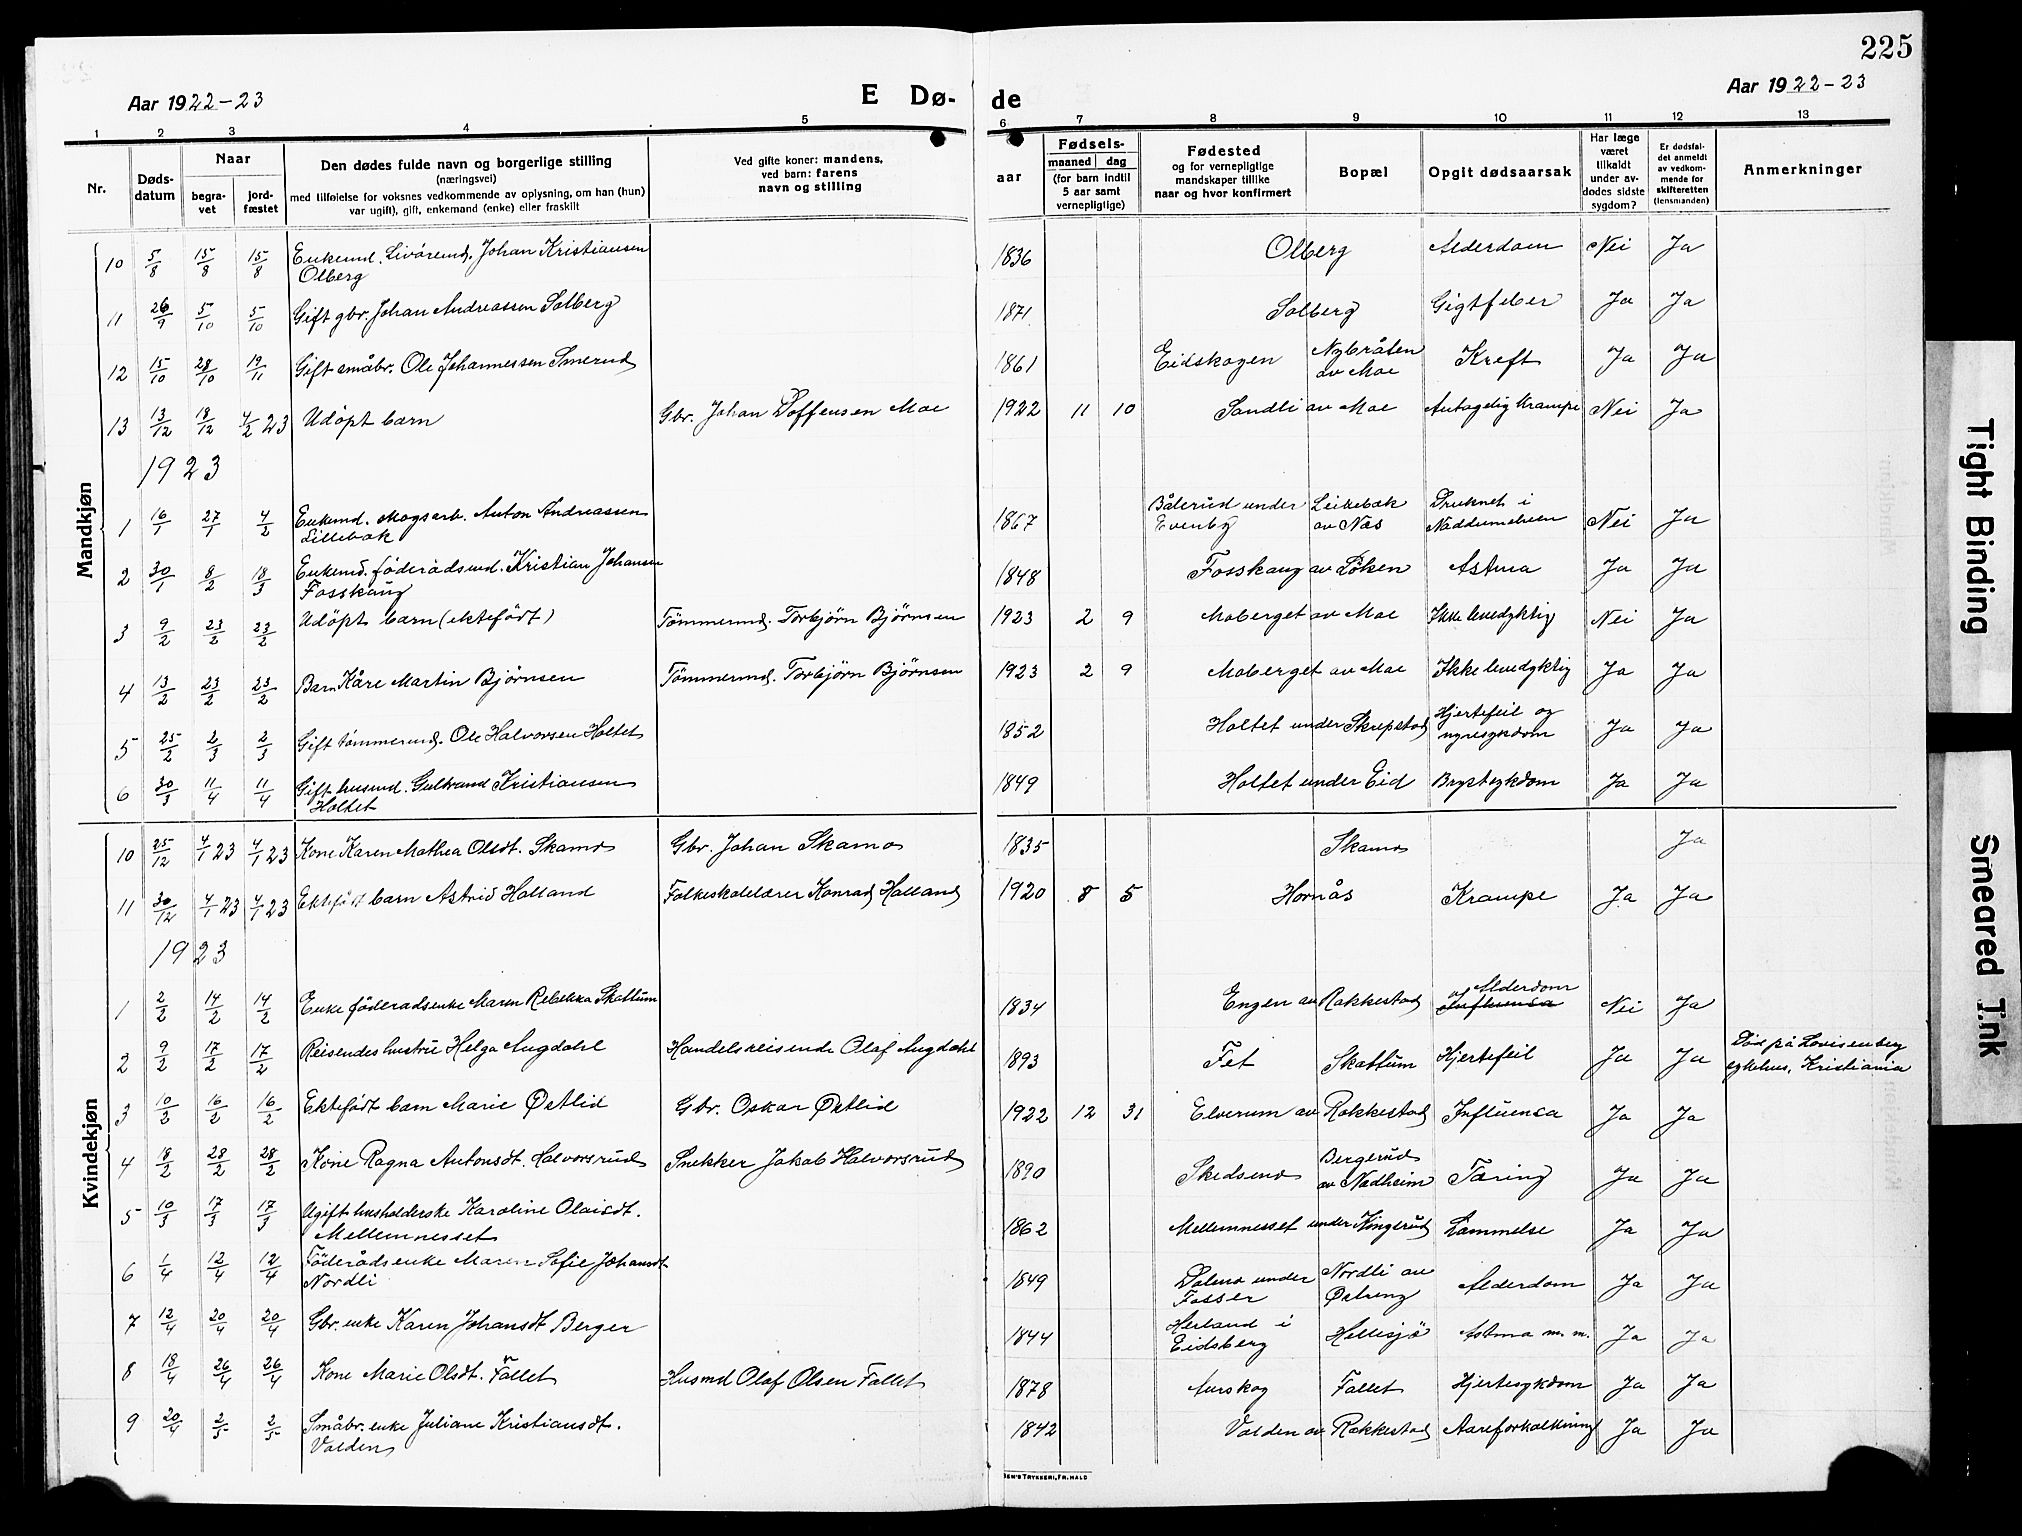 225
Aar 1922-23
E Dø-
de
Aar 1922-23
1 2 3 4 5 6 7 8 9 10 11 12 13
Nr.
Døds-
datum
Naar
begra-
vet
jord-
fæstet
Den dødes fulde navn og borgerlige stilling
(næringsvei)
med tilføielse for voksnes vedkommende av oplysning, om han (hun)
var ugift), gift, enkemand (enke) eller fraskilt
Ved gifte koner: mandens,
ved barn: farens
navn og stilling
aar
Fødsels-
maaned dag
(for barn indtil
5 aar samt
vernepligtige)
Fødested
og for vernepligtige
mandskaper tillike
naar og hvor konfirmert
Bopæl
Opgit dødsaarsak
Har læge
været
tilkaldt
under av-
dødes sidste
sygdom?
Er dødsfal-
det anmeldt
av vedkom-
mende for
skifteretten
(lensmanden)
Anmerkninger
Mandkjøn
10 5/8 15/8 15/8 Enkemd. Livøremd. Johan Kristiansen Olberg 1836 Olberg Alderdom Nei Ja
11 26/9 5/10 5/10 Gift gbr. Johan Andreassen Solberg 1871 Solberg Gigtfeber Ja Ja
12 15/10 28/10 19/11 Gift småbr. Ole Johannessen Smerud 1861 Eidskogen Nybråten av Moe Kreft Ja Ja
13 13/12 18/12 4/2 23 Udöpt barn Gbr. Johan Doffensen Moe 1922 11 10 Sandli av Moe Antagelig Krampe Nei Ja
1923
1 16/1 27/1 4/2 Enkemd. Mogsarb. Anton Andreassen Lillebæk 1867 Bålerud under Evenby Leikebæk av Næs Druknet i Naddumelven Nei Ja
2 30/1 8/2 18/3 Enkemd. föderådsmd. Kristian Johansen Fosskaug 1848 Fosskaug av Löken Astma Ja Ja
3 9/2 23/2 23/2 Udöpt barn (ektefödt) Tömmermd. Torbjørn Bjørnsen 1923 2 9 Moberget av Moe Ikke levedyktig Nei Ja
4 13/2 23/2 23/2 Barn Kåre Martin Bjørnsen Tömmermd. Torbjørn Bjørnsen 1923 2 9 Moberget av Moe Ikke levedyktig Ja Ja
5 25/2 2/3 2/3 Gift tömmermd. Ole Halvorsen Holtet 1852 Holtet under Skrepstad Hjertefeil og nyresykdom Ja Ja
6 30/3 11/4 11/4 Gift husmd. Gulbrand Kristiansen Holtet 1849 Holtet under Eid Brystsykdom Ja Ja
Kvindekjøn
10 25/12 4/1 23 4/1 23 Kone Karen Mathea Olsdt. Skamo Gbr. Johan Skamo 1835 Skamo Ja
11 30/12 4/1 23 4/1 23 Ektefödt barn Astrid Holland Folkeskolelærer Konrad Holland 1920 8 5 Hornås Krampe Ja Ja
1923
1 2/2 14/2 14/2 Enke föderadsenke Maren Rebekka Skattum 1834 Engen av Rakkestad Alderdom Influensa Nei Ja
2 9/2 17/2 17/2 Reisendes hustru Helga Augdahl Handelsreisende Olaf Augdahl 1893 Fet Skattum Hjertefeil Ja Ja Död på Lovisenberg sykehus, Kristiania
3 10/2 16/2 16/2 Ektefödt barn Marie Østlid Gbr. Oskar Østlid 1922 12 31 Elverum av Rakkestad Influensa Ja Ja
4 18/2 28/2 28/2 Kone Ragna Antonsdt. Halvorsrud Snekker Jakob Halvorsrud 1890 Skedsmo Bergerud av Nadheim Tæring Ja Ja
5 10/3 17/3 17/3 Ugift husholderske Karoline Olaisdt. Mellemnesset 1862 Mellemnesset under Kingerud Lammelse Ja Ja
6 1/4 12/4 12/4 Föderådsenke Maren Sofie Johansdt Nordli 1849 Dalend under Fosser Nordli av Østreng Alderdom Ja Ja
7 12/4 20/4 20/4 Gbr. enke Karen Johansdt Berger 1844 Herland i Eidsberg Hellesjö Astma m. m. Ja Ja
8 18/4 26/4 26/4 Kone Marie Olsdt. Fallet Husmd Olaf Olsen Fallet 1878 Aurskog Fallet Hjertesykdom Ja Ja
9 20/4 2/5 2/5 Småbr. enke Juliane Kristiansdt. Volden 1842 Volden av Rakkestad Aareforkalkning Ja Ja
SEN'S TRYKKERI, FR. HALD
Tight Binding
Smeared Ink